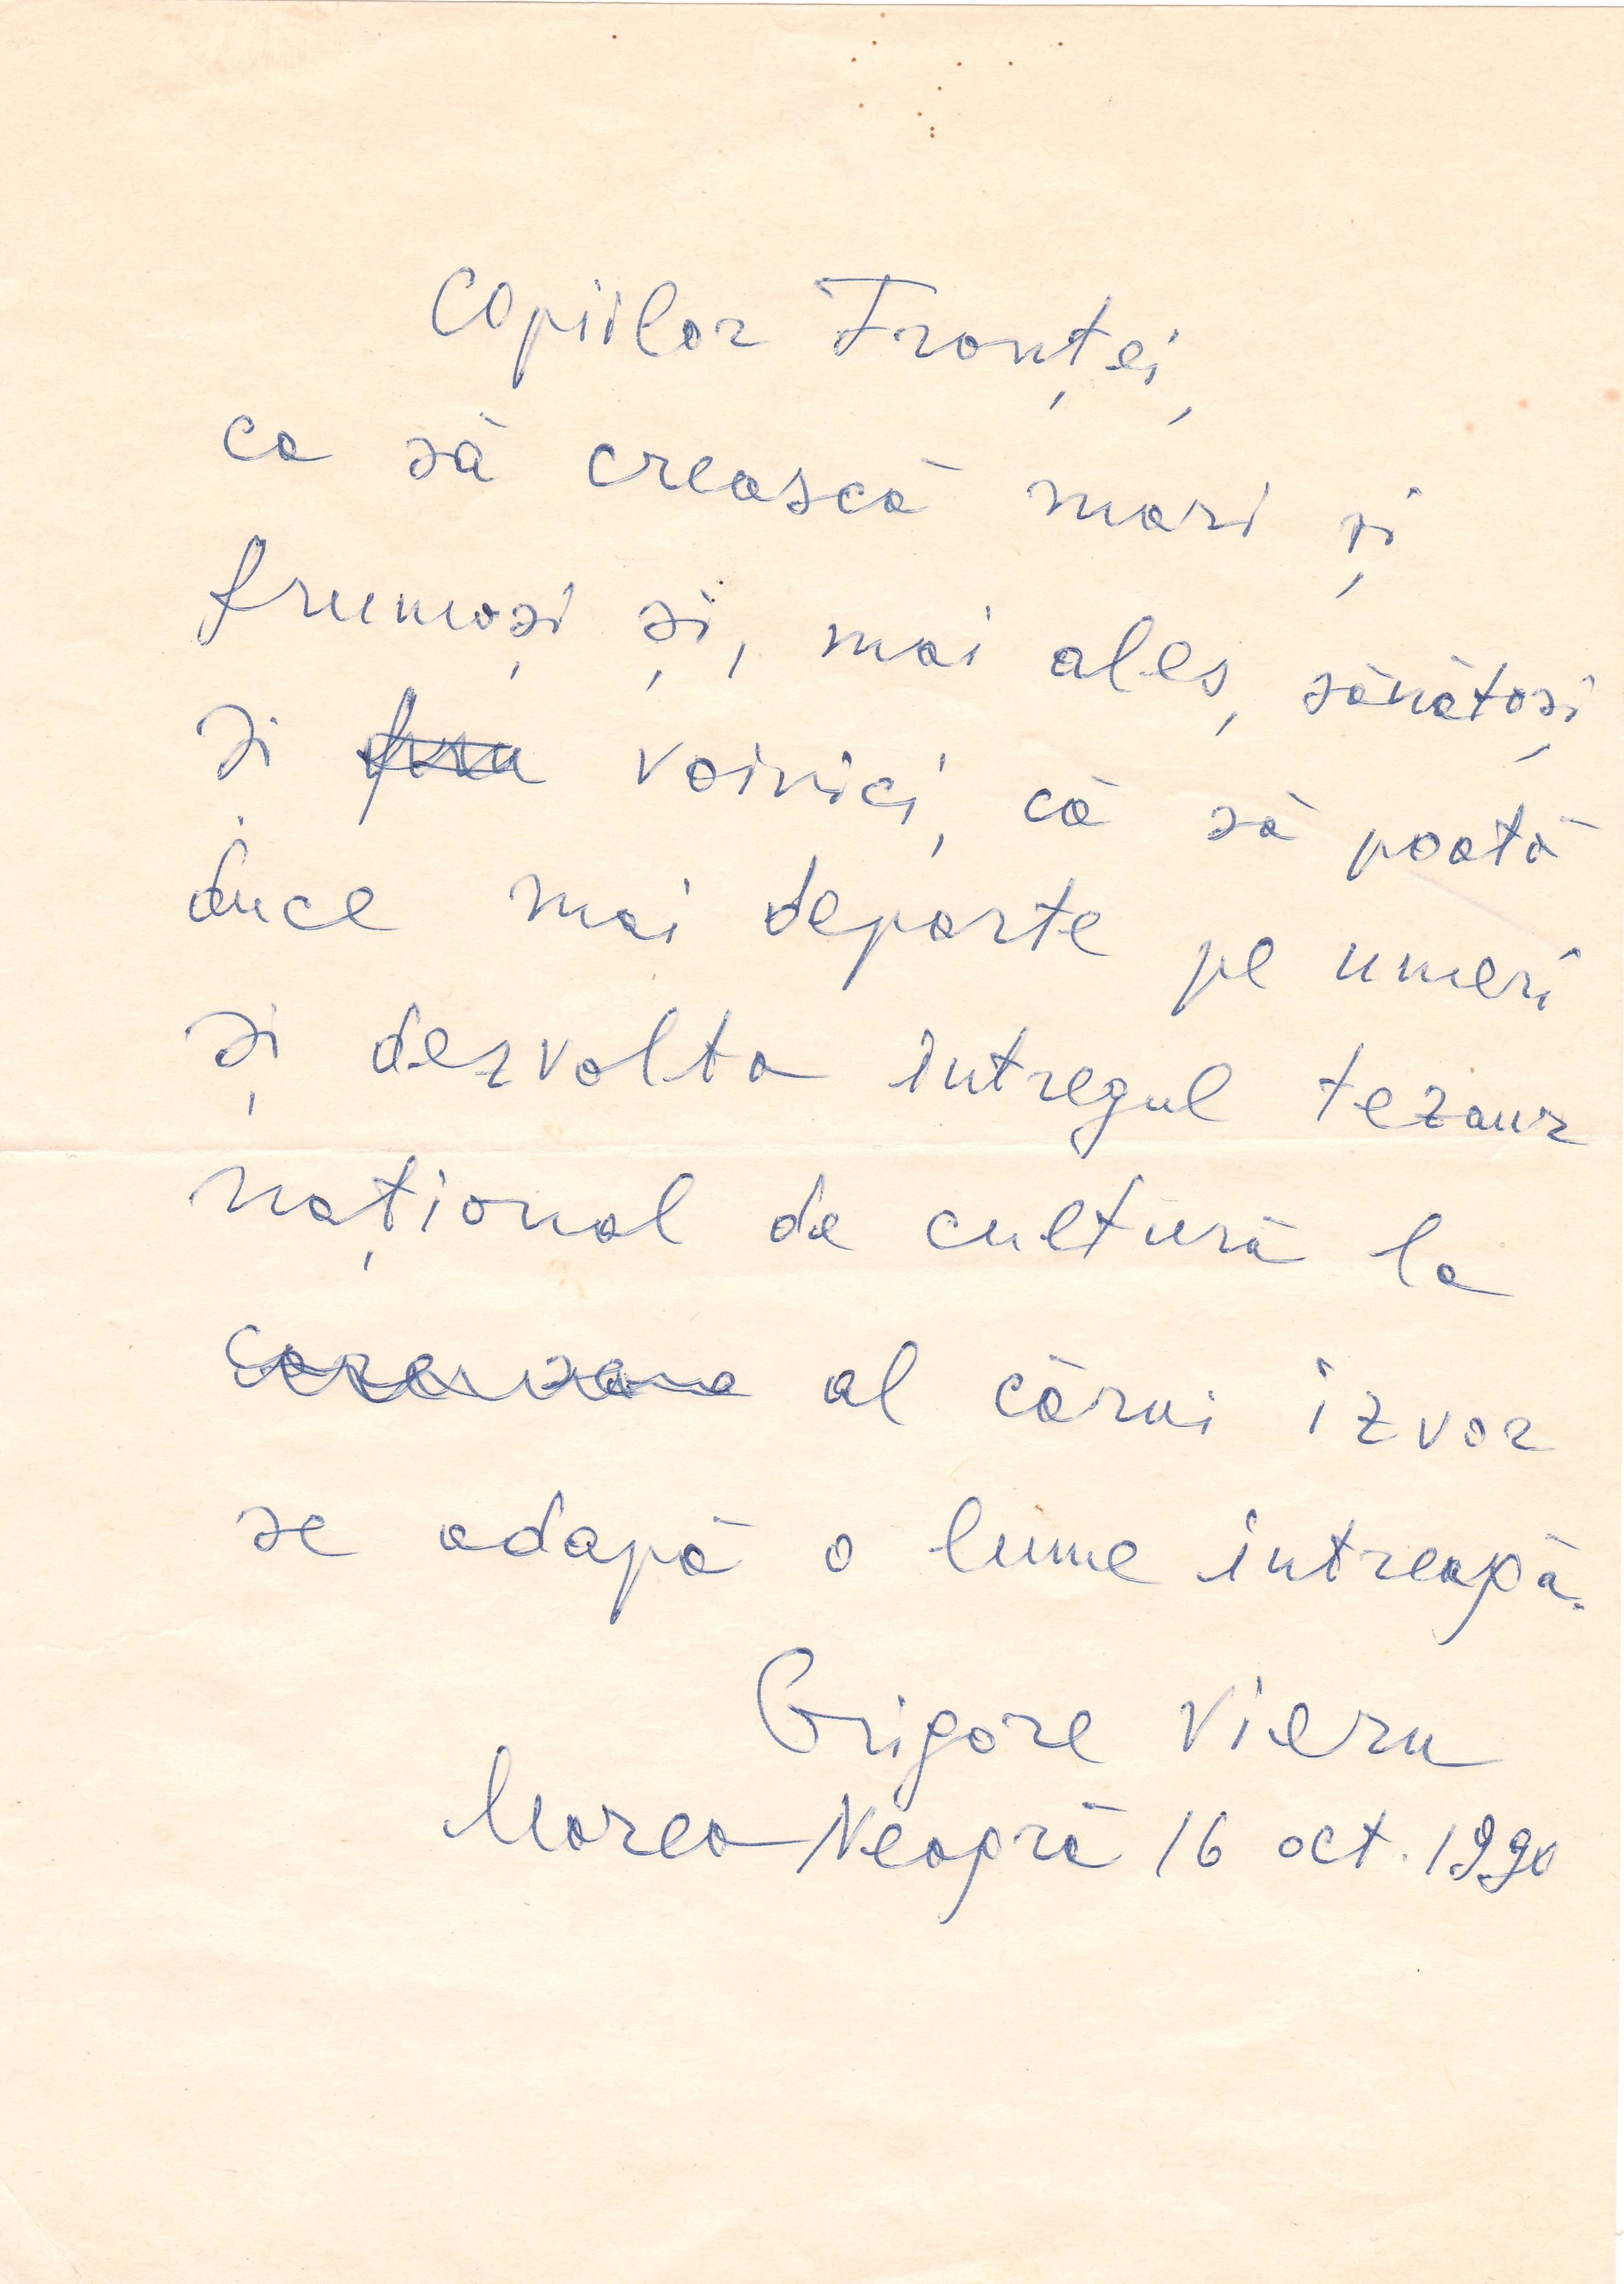 Copiilor Franței,
ca să crească mari și
frumoși și, mai ales, sănătoși
și voinici, că să poată
duce mai departe pe umeri
și dezvolta întregul tezaur
național de cultură la
al cărui izvor
se adapă o lume întreagă.
Grigore Vieru
Marea Neagră 16 oct. 1990